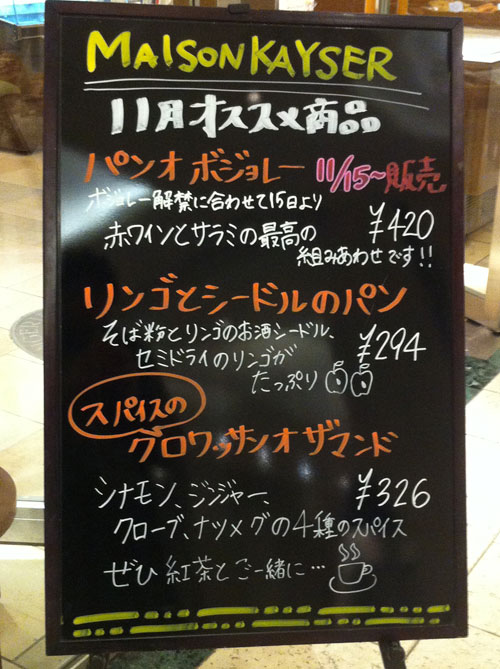 MAISON KAYSER
11月オススメ商品
パンオ ボジョレー 11/15〜販売
ボジョレー解禁に合わせて15日より
赤ワインとサラミの最高の ¥420
組みあわせです!!
リンゴとシードルのパン
そば粉とリンゴのお酒シードル、
セミドライのリンゴが ¥294
たっぷり
スパイスの
クロワッサンオザマンド
シナモン、ジンジャー、 ¥326
クローブ、ナツメグの4種のスパイス
ぜひ紅茶とご一緒に…